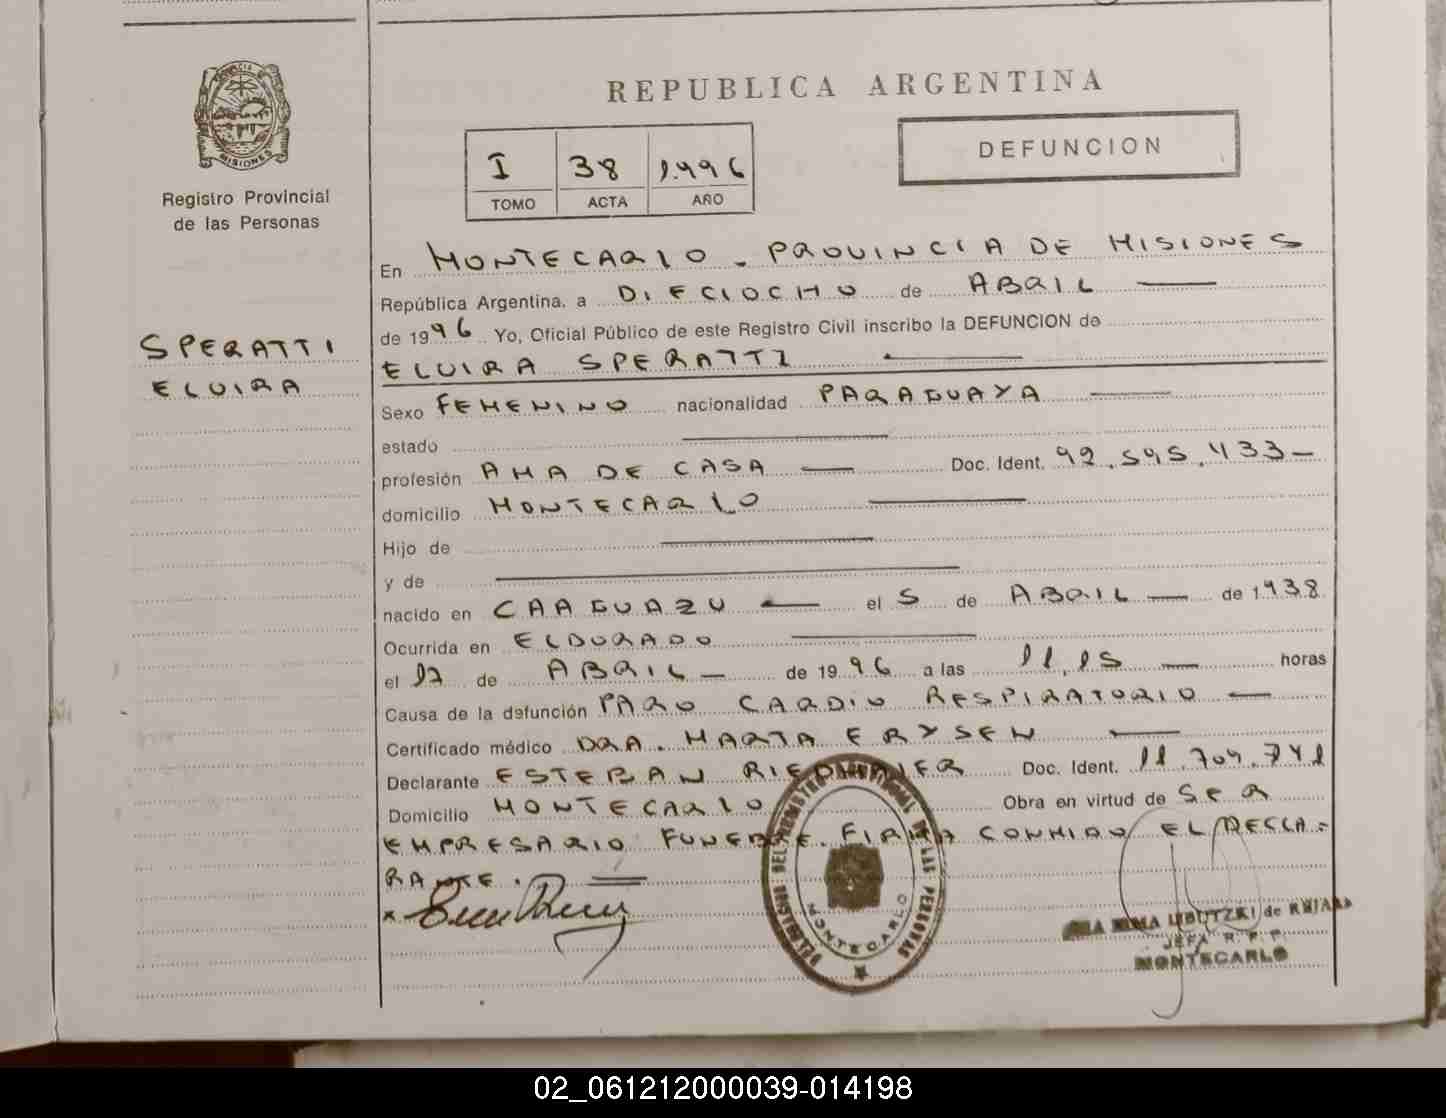 PROVINCIA DE
MISIONES
Registro Provincial
de las Personas
SPERATTI
ELVIRA
REPUBLICA ARGENTINA
I 38 1.996
TOMO ACTA AÑO
DEFUNCION
En MONTECARLO - PROVINCIA DE MISIONES
República Argentina, a DIECIOCHO de ABRIL
de 1996 Yo, Oficial Público de este Registro Civil inscribo la DEFUNCION de
ELVIRA SPERATTI
Sexo FEMENINO nacionalidad PARAGUAYA
estado
profesión AMA DE CASA Doc. Ident. 92.595.433-
domicilio MONTECARLO
Hijo de
y de
nacido en CAAGUAZU el 5 de ABRIL de 1938
Ocurrida en ELDORADO
el 17 de ABRIL de 1996 a las 11,15 horas
Causa de la defunción PARO CARDIO RESPIRATORIO
Certificado médico DRA. MARTA ERYSEN
Declarante ESTEBAN Doc. Ident. 11.709.741
Domicilio MONTECARLO Obra en virtud de SER
EMPRESARIO FUNEBRE. FIRMA CONMIGO EL DECLA=
RANTE.
DEL REGISTRO PROVINCIAL DE LAS PERSONAS
MONTECARLO
de
JEFA R.P.P.
MONTECARLO
02_061212000039-014198